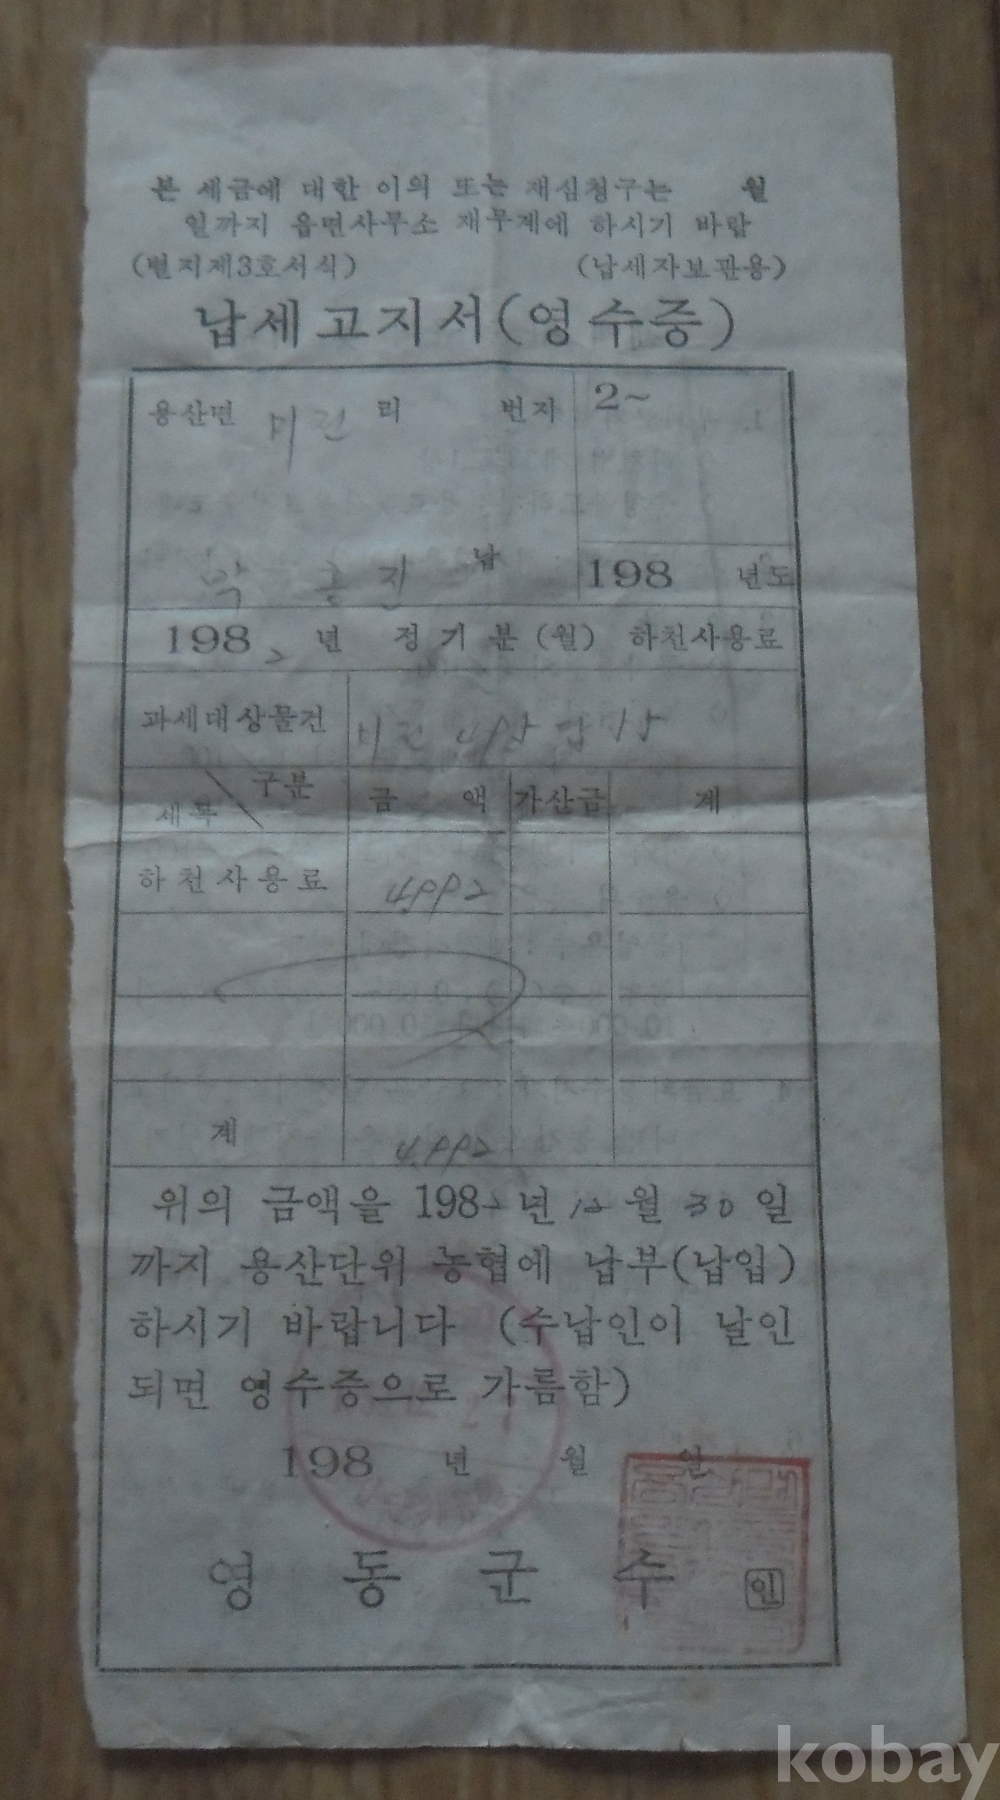 본 세금에 대한 이의 또는 재심청구는 월
일까지 읍면사무소 재무계에 하시기 바람
(별지제3호서식) (납세자보관용)
납세고지서(영수증)
용산면 미전 리 번지 2~
박 종진 납 198 년도
1982 년 정기분(월) 하천사용료
과세대상물건 미전
구분
세목 금 액 가산금 계
하천사용료 4,992
계 4,992
위의 금액을 1982년 12월 30일
까지 용산단위 농협에 납부(납입)
하시기 바랍니다 (수납인이 날인
되면 영수증으로 가름함)
198 년 월 일
영 동 군 수 인
kobay